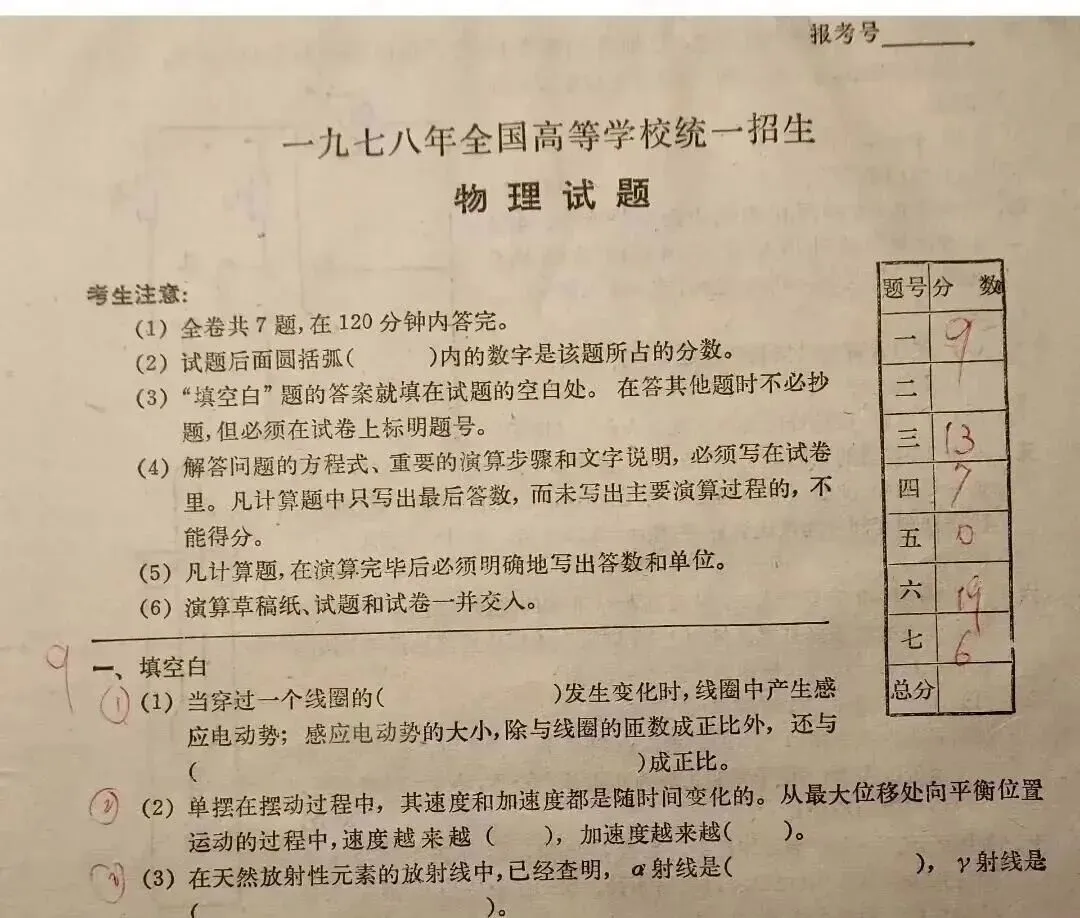 报考号
一九七八年全国高等学校统一招生
物理试题
考生注意:
(1) 全卷共7题,在120分钟内答完。
(2) 试题后面圆括弧(  )内的数字是该题所占的分数。
(3) “填空白”题的答案就填在试题的空白处。在答其他题时不必抄
题,但必须在试卷上标明题号。
(4) 解答问题的方程式、重要的演算步骤和文字说明,必须写在试卷
里。凡计算题中只写出最后答数,而未写出主要演算过程的,不
能得分。
(5) 凡计算题,在演算完毕后必须明确地写出答数和单位。
(6) 演算草稿纸、试题和试卷一并交入。
题号 分 数
一 9
二
三 13
四 7
五 0
六 19
七 6
总分
9 一、填空白
① (1) 当穿过一个线圈的(  )发生变化时,线圈中产生感
应电动势;感应电动势的大小,除与线圈的匝数成正比外,还与
(  )成正比。
② (2) 单摆在摆动过程中,其速度和加速度都是随时间变化的。从最大位移处向平衡位置
运动的过程中,速度越来越(  ),加速度越来越(  )。
(3) 在天然放射性元素的放射线中,已经查明,α射线是(  ),γ射线是
(  )。